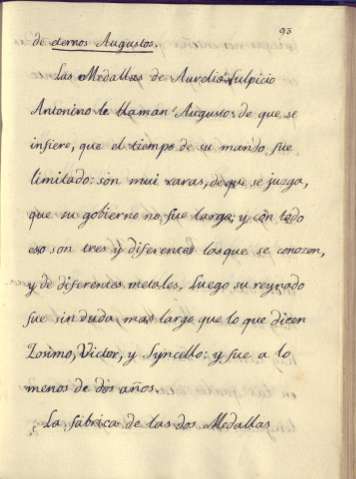 93
de eternos Augustos.
Las Medallas de Aurelio Sulpicio
Antonino le llaman Augusto: de que se
infiere, que el tiempo de su mando fue
limitado: son mui raras, de que se juzga,
que su gobierno no fue largo; y con todo
eso son tres y diferentes las que se conozen,
y de diferentes metales. Luego su reynado
fue sin duda mas largo que lo que dicen
Zosimo, Victor, y Syncello: y fue a lo
menos de dos años.
La fabrica de las dos Medallas